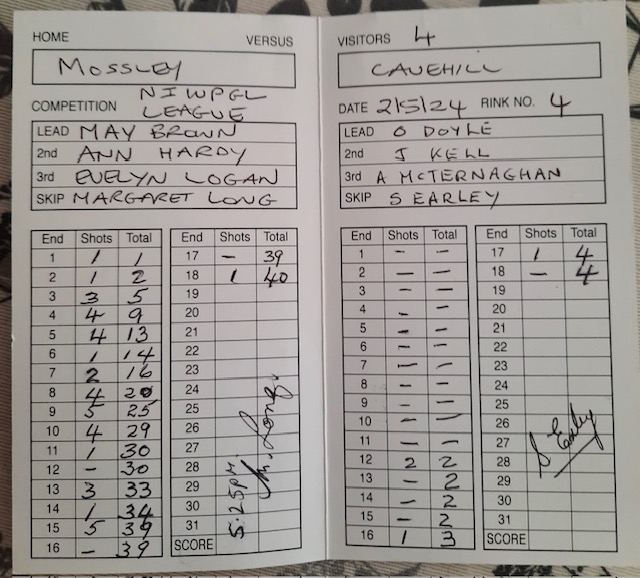 HOME VERSUS
MOSSLEY
COMPETITION NIWPGL
LEAGUE
LEAD MAY BROWN
2nd ANN HARDY
3rd EVELYN LOGAN
SKIP MARGARET LONG
End Shots Total
1 1 1
2 1 2
3 3 5
4 4 9
5 4 13
6 1 14
7 2 16
8 4 20
9 5 25
10 4 29
11 1 30
12 - 30
13 3 33
14 1 34
15 5 39
16 - 39
End Shots Total
17 - 39
18 1 40
19
20
21
22
23
24
25
26
27
28
29
30
31
SCORE
5:25PM.
M. Long
VISITORS 4
CAVEHILL
DATE 2/5/24 RINK NO. 4
LEAD O DOYLE
2nd J KELL
3rd A McTERNAGHAN
SKIP S EARLEY
End Shots Total
1 - -
2 - -
3 - -
4 - -
5 - -
6 - -
7 - -
8 - -
9 - -
10 - -
11 - -
12 2 2
13 - 2
14 - 2
15 - 2
16 1 3
End Shots Total
17 1 4
18 - 4
19
20
21
22
23
24
25
26
27
28
29
30
31
SCORE
S Earley